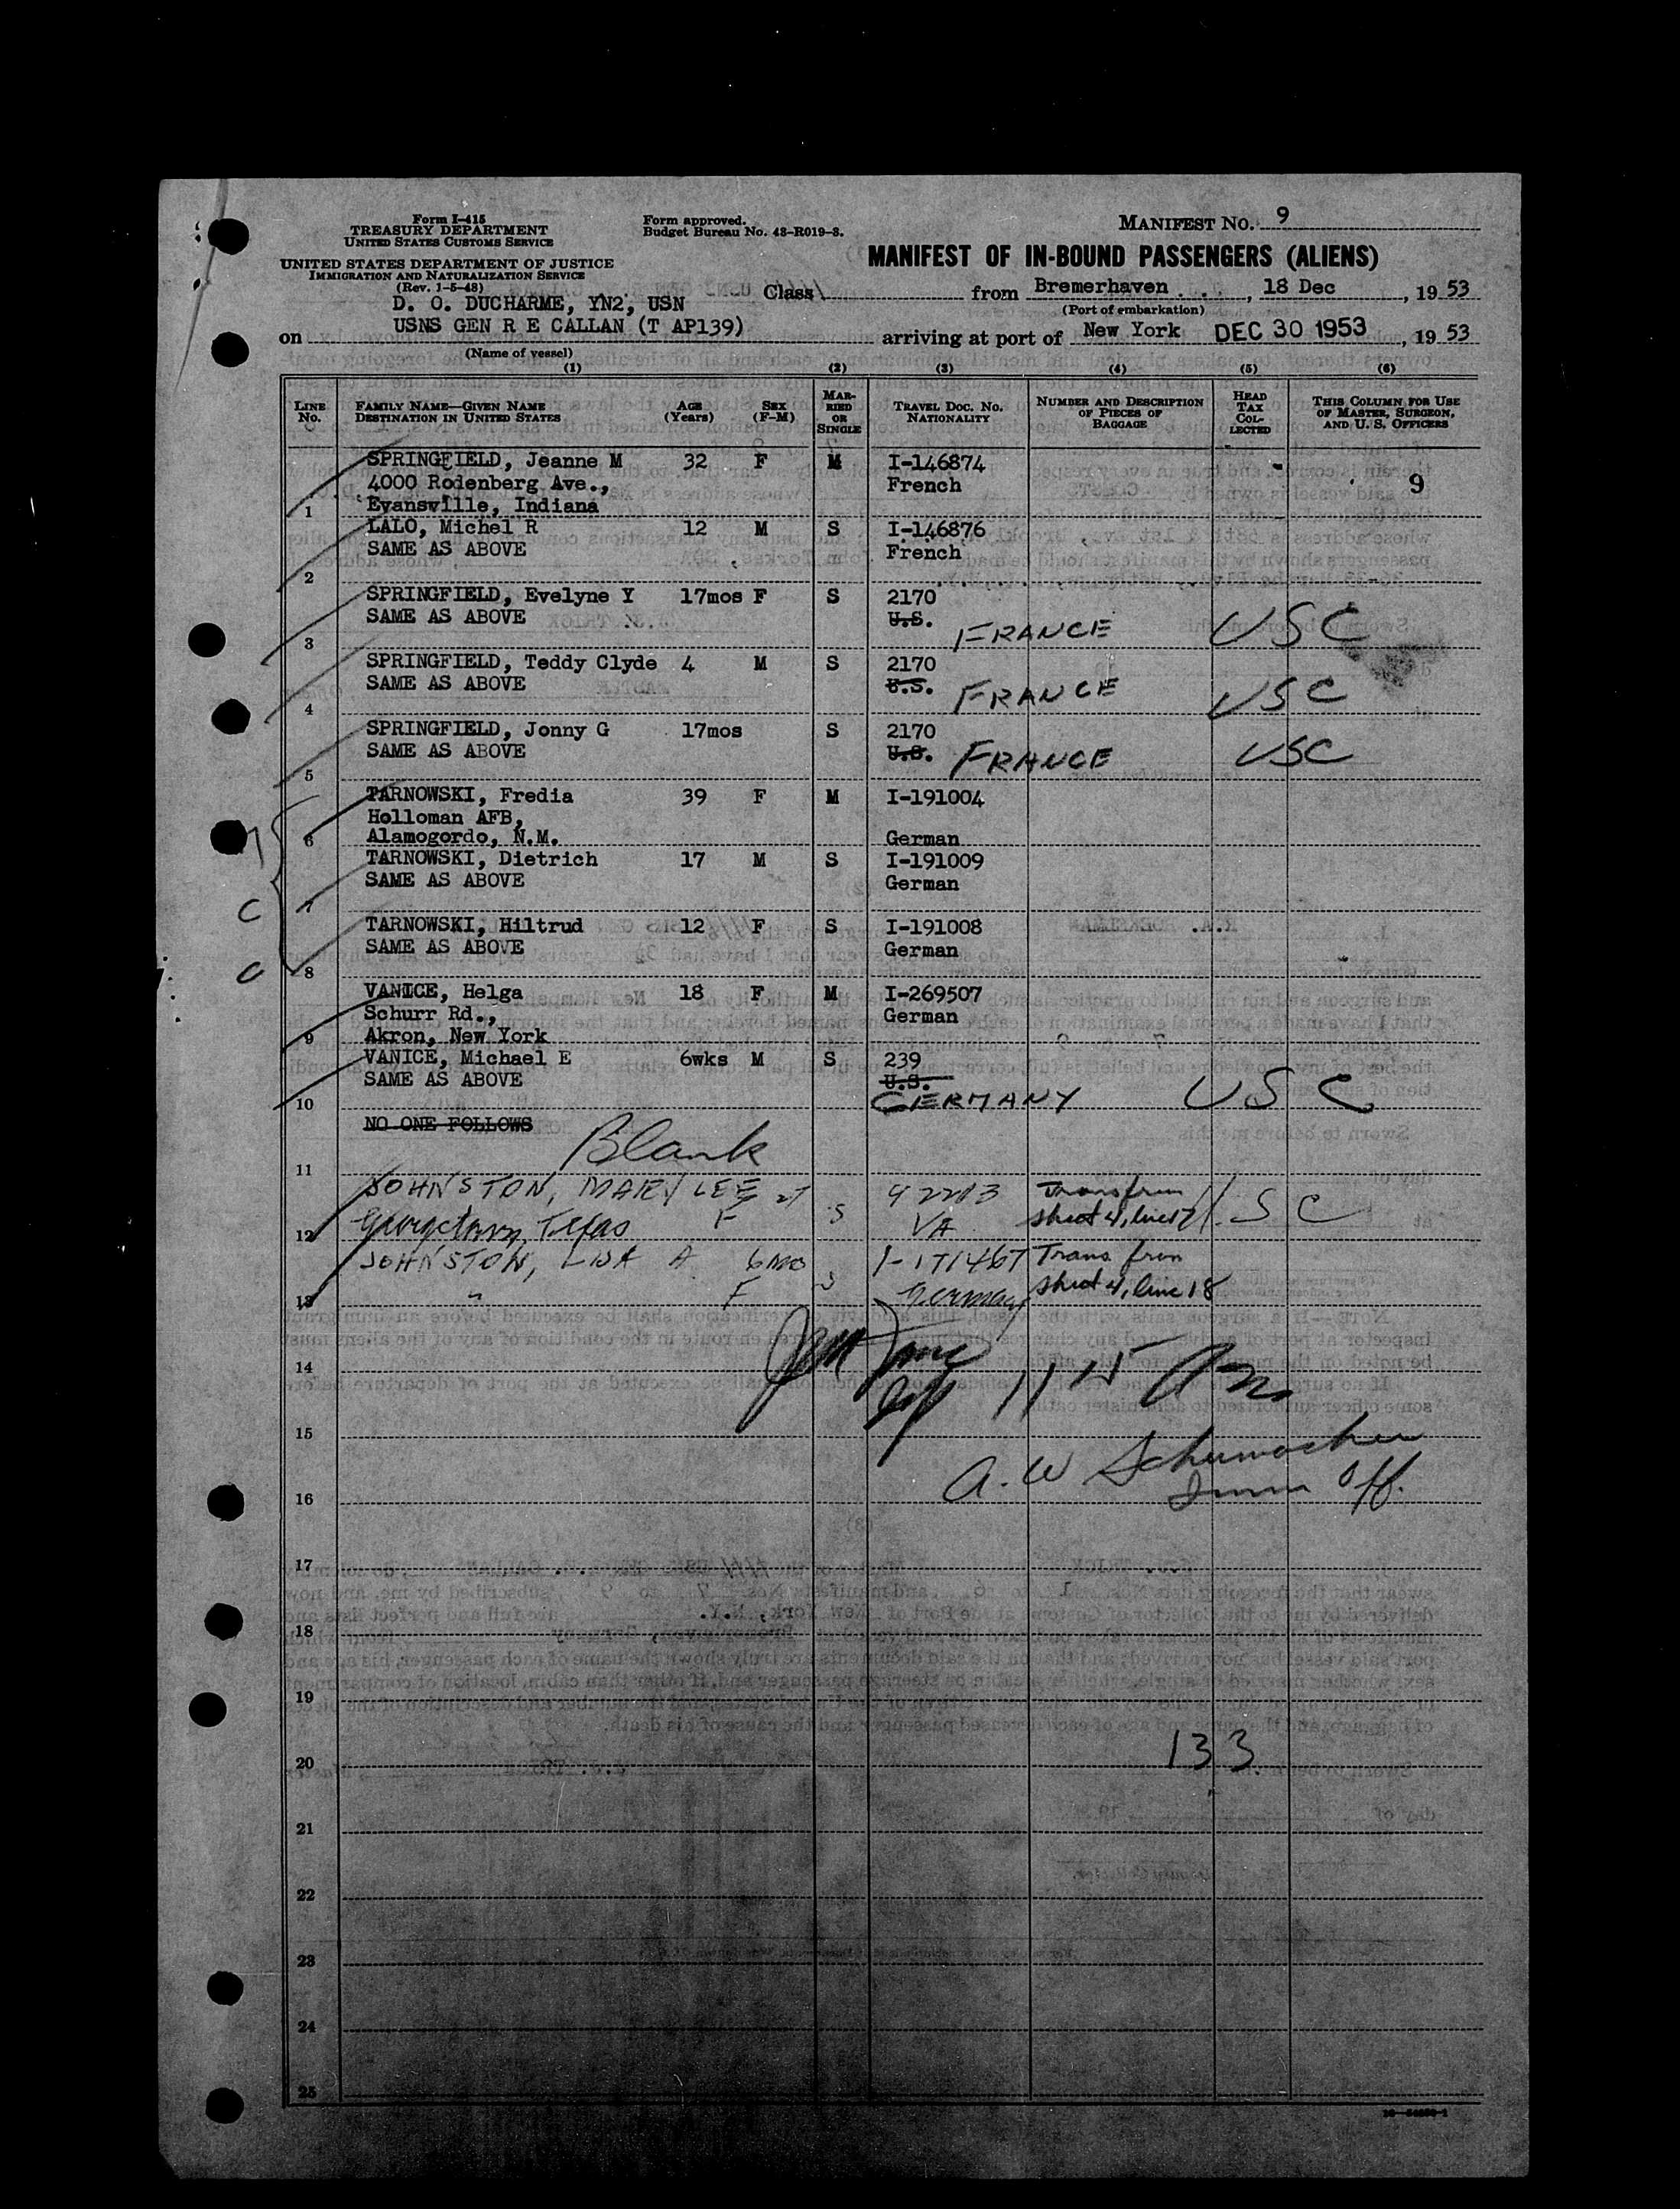 Form I-415
TREASURY DEPARTMENT
UNITED STATES CUSTOMS SERVICE
UNITED STATES DEPARTMENT OF JUSTICE
IMMIGRATION AND NATURALIZATION SERVICE
(Rev. 1-5-48)
Form approved.
Budget Bureau No. 43-R019-3.
MANIFEST NO. 9
MANIFEST OF IN-BOUND PASSENGERS (ALIENS)
D. O. DUCHARME, YN2, USN
Class from Bremerhaven . . . , 18 Dec , 19 53
(Port of embarkation)
on USNS GEN R E CALLAN (T AP139) arriving at port of New York DEC 30 1953 , 19 53
(Name of vessel)
(1) (2) (3) (4) (5) (6)
LINE NO. FAMILY NAME—GIVEN NAME DESTINATION IN UNITED STATES AGE (Years) SEX (F-M) MARRIED OR SINGLE TRAVEL DOC. NO. NATIONALITY NUMBER AND DESCRIPTION OF PIECES OF BAGGAGE HEAD TAX COLLECTED THIS COLUMN FOR USE OF MASTER, SURGEON, AND U. S. OFFICERS
SPRINGFIELD, Jeanne M 32 F M I-146874
4000 Rodenberg Ave., French 9
1 Evansville, Indiana
LALO, Michel R 12 M S I-146876
SAME AS ABOVE French
2
SPRINGFIELD, Evelyne Y 17mos F S 2170
SAME AS ABOVE U.S. FRANCE USC
3
SPRINGFIELD, Teddy Clyde 4 M S 2170
SAME AS ABOVE U.S. FRANCE USC
4
SPRINGFIELD, Jonny G 17mos S 2170
SAME AS ABOVE U.S. FRANCE USC
5
TARNOWSKI, Fredia 39 F M I-191004
Holloman AFB,
6 Alamogordo, N.M. German
TARNOWSKI, Dietrich 17 M S I-191009
SAME AS ABOVE German
C 7
TARNOWSKI, Hiltrud 12 F S I-191008
SAME AS ABOVE German
C 8
VANICE, Helga 18 F M I-269507
Schurr Rd., German
9 Akron, New York
VANICE, Michael E 6wks M S 239
SAME AS ABOVE U.S.
10 GERMANY USC
NO ONE FOLLOWS
11 Blank
JOHNSTON, MARY LEE 27 S 42213 Trans from
12 Georgetown, Texas F VA sheet 4, line 17 U S C
JOHNSTON, LISA A 6 mo S I-171467 Trans from
13 " F Germany sheet 4, line 18
14
11 15 Am
15
A. W Schumacher
16 Imm Off.
17
18
19
20 133
21
22
23
24
25